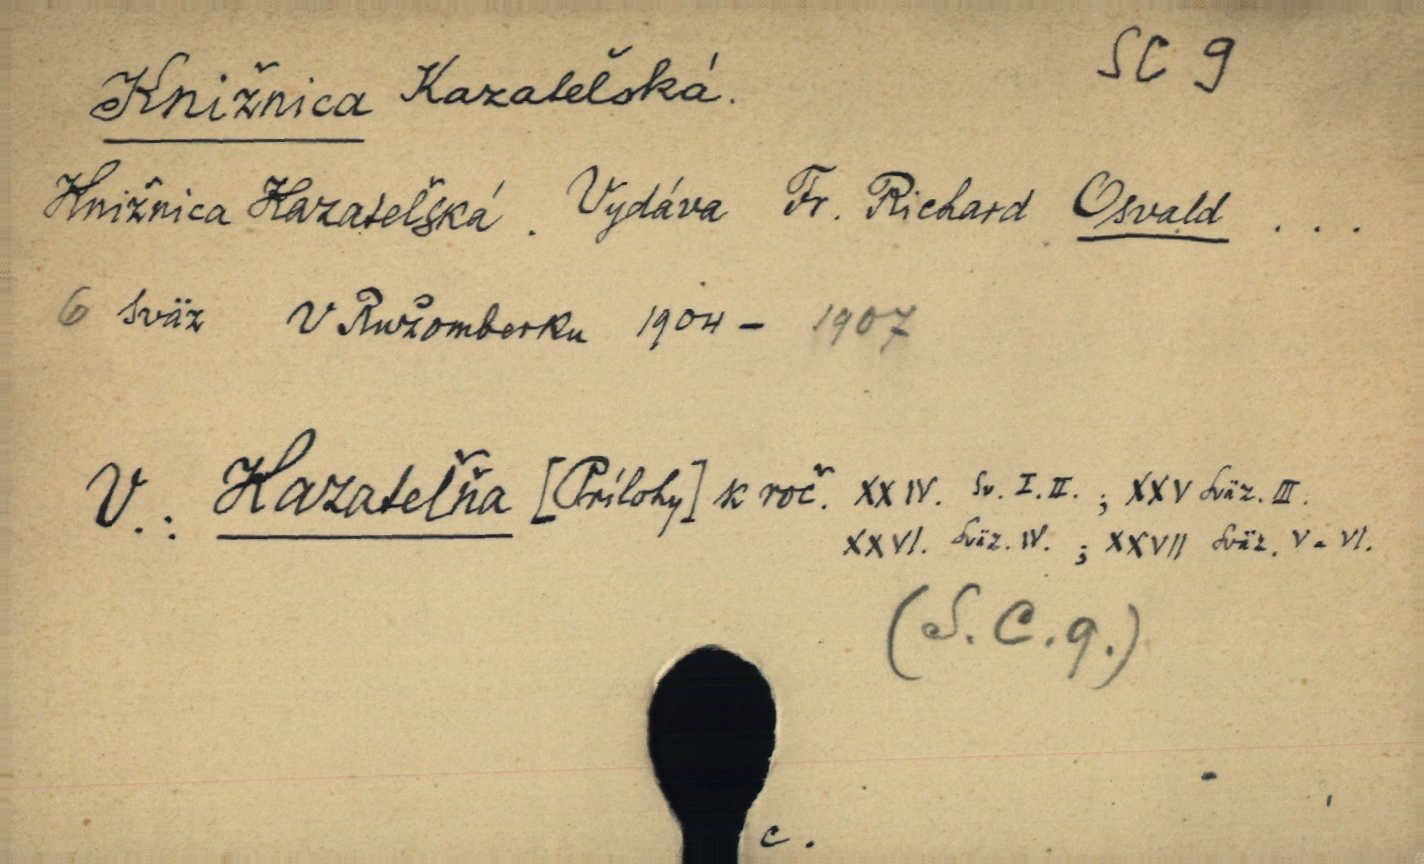 SC 9
Knižnica Kazateľská.
Knižnica Kazateľská. Vydáva Fr. Richard Osvald ...
6 sväz V Ružomberku 1904 - 1907
V.: Kazateľňa [Prílohy] k roč. XXIV. Sv. I. II. ; XXV Sväz. III.
XXVI. Sväz. IV. ; XXVII Sväz. V - VI.
(S.C.9.)
c.